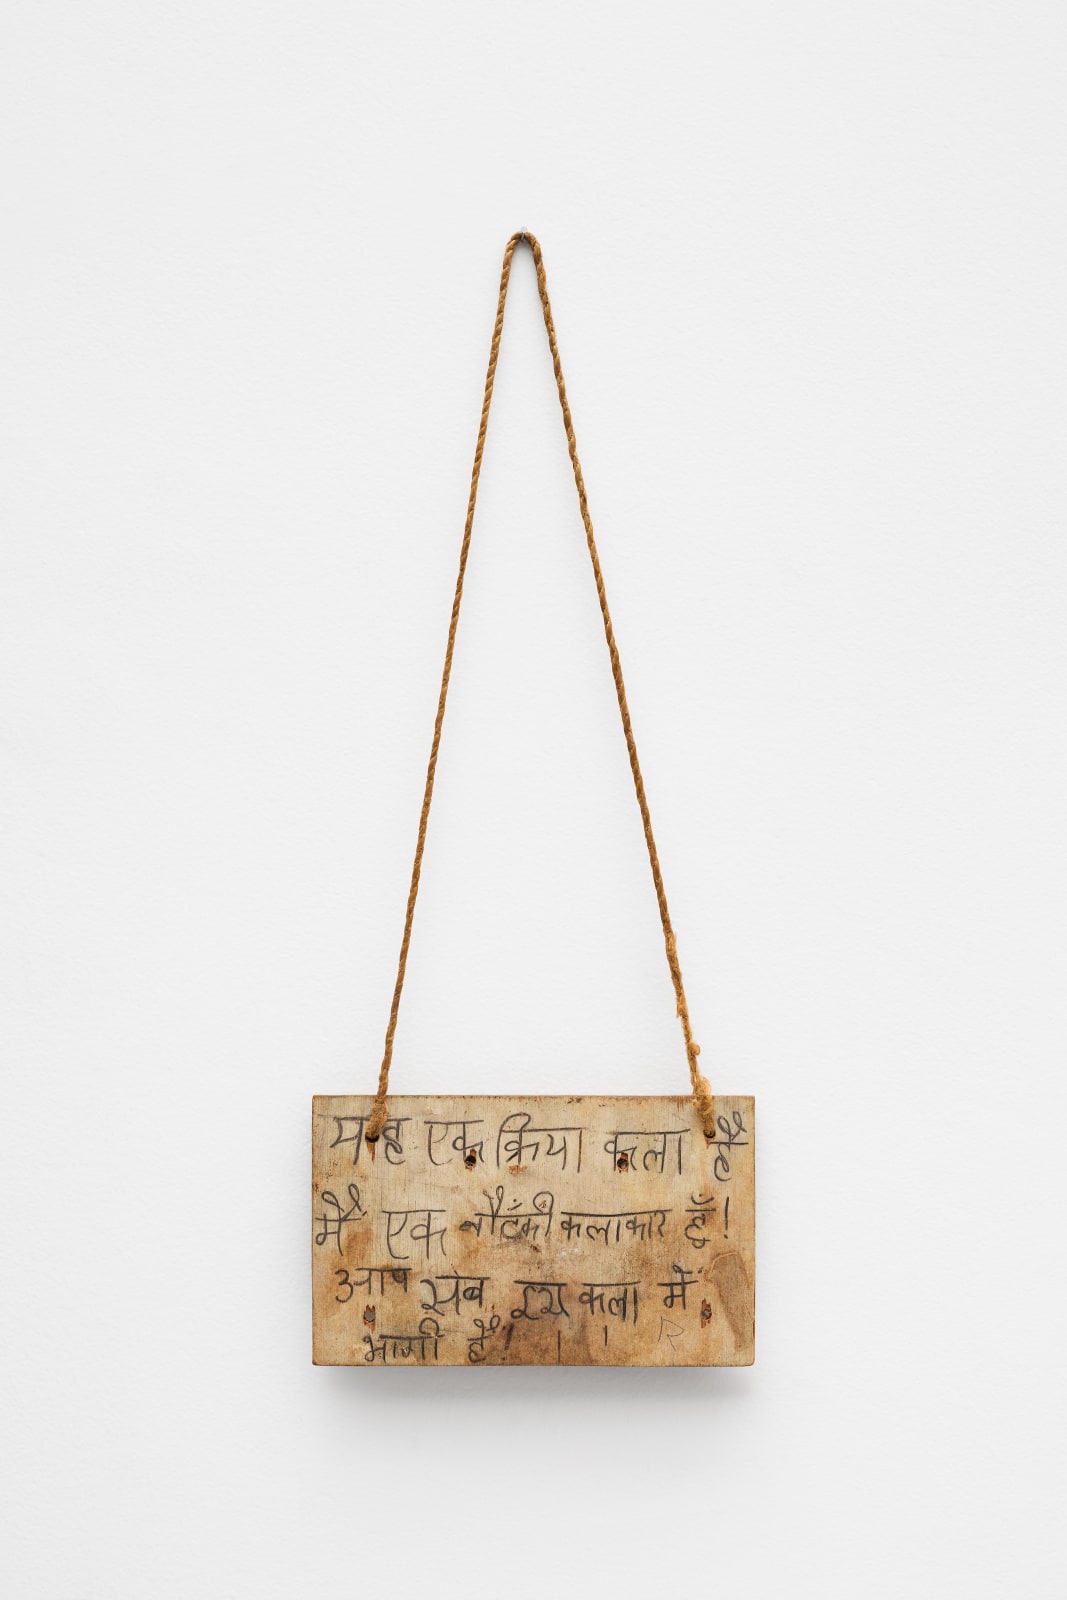 यह एक क्रिया कला है
मैं एक नौटँकी कलाकार हूँ!
आप सब इस कला में
भागी हैं! । ।
R